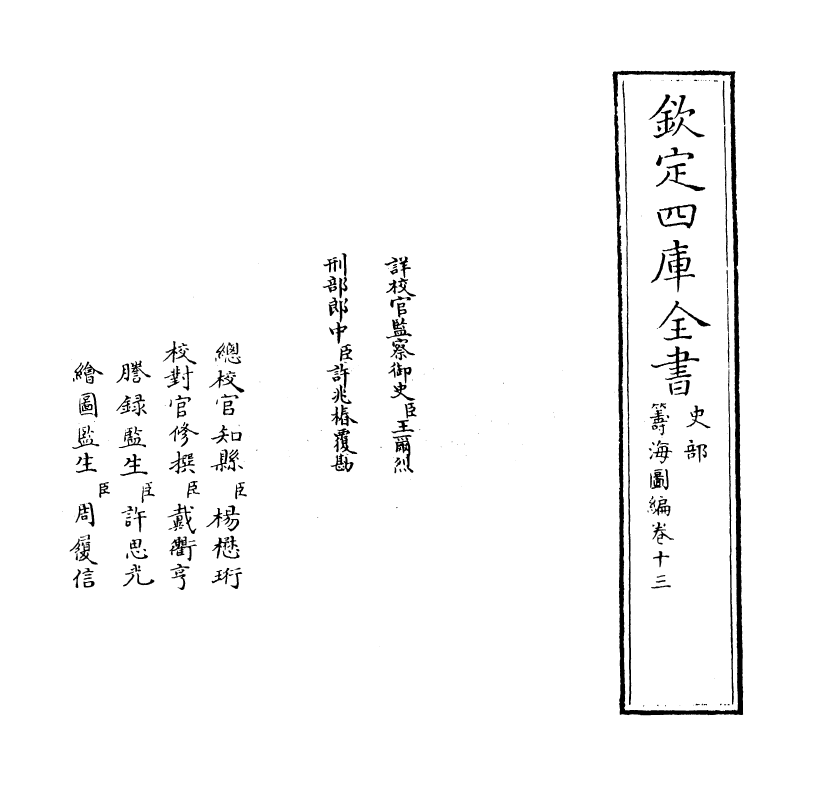 欽定四庫全書
史部
籌海圖編卷十三
詳校官監察御史臣王爾烈
刑部郎中臣許兆椿覆勘
總校官知縣臣楊懋珩
校對官修撰臣戴衢亨
謄錄監生臣許思光
繪圖監生臣周履信